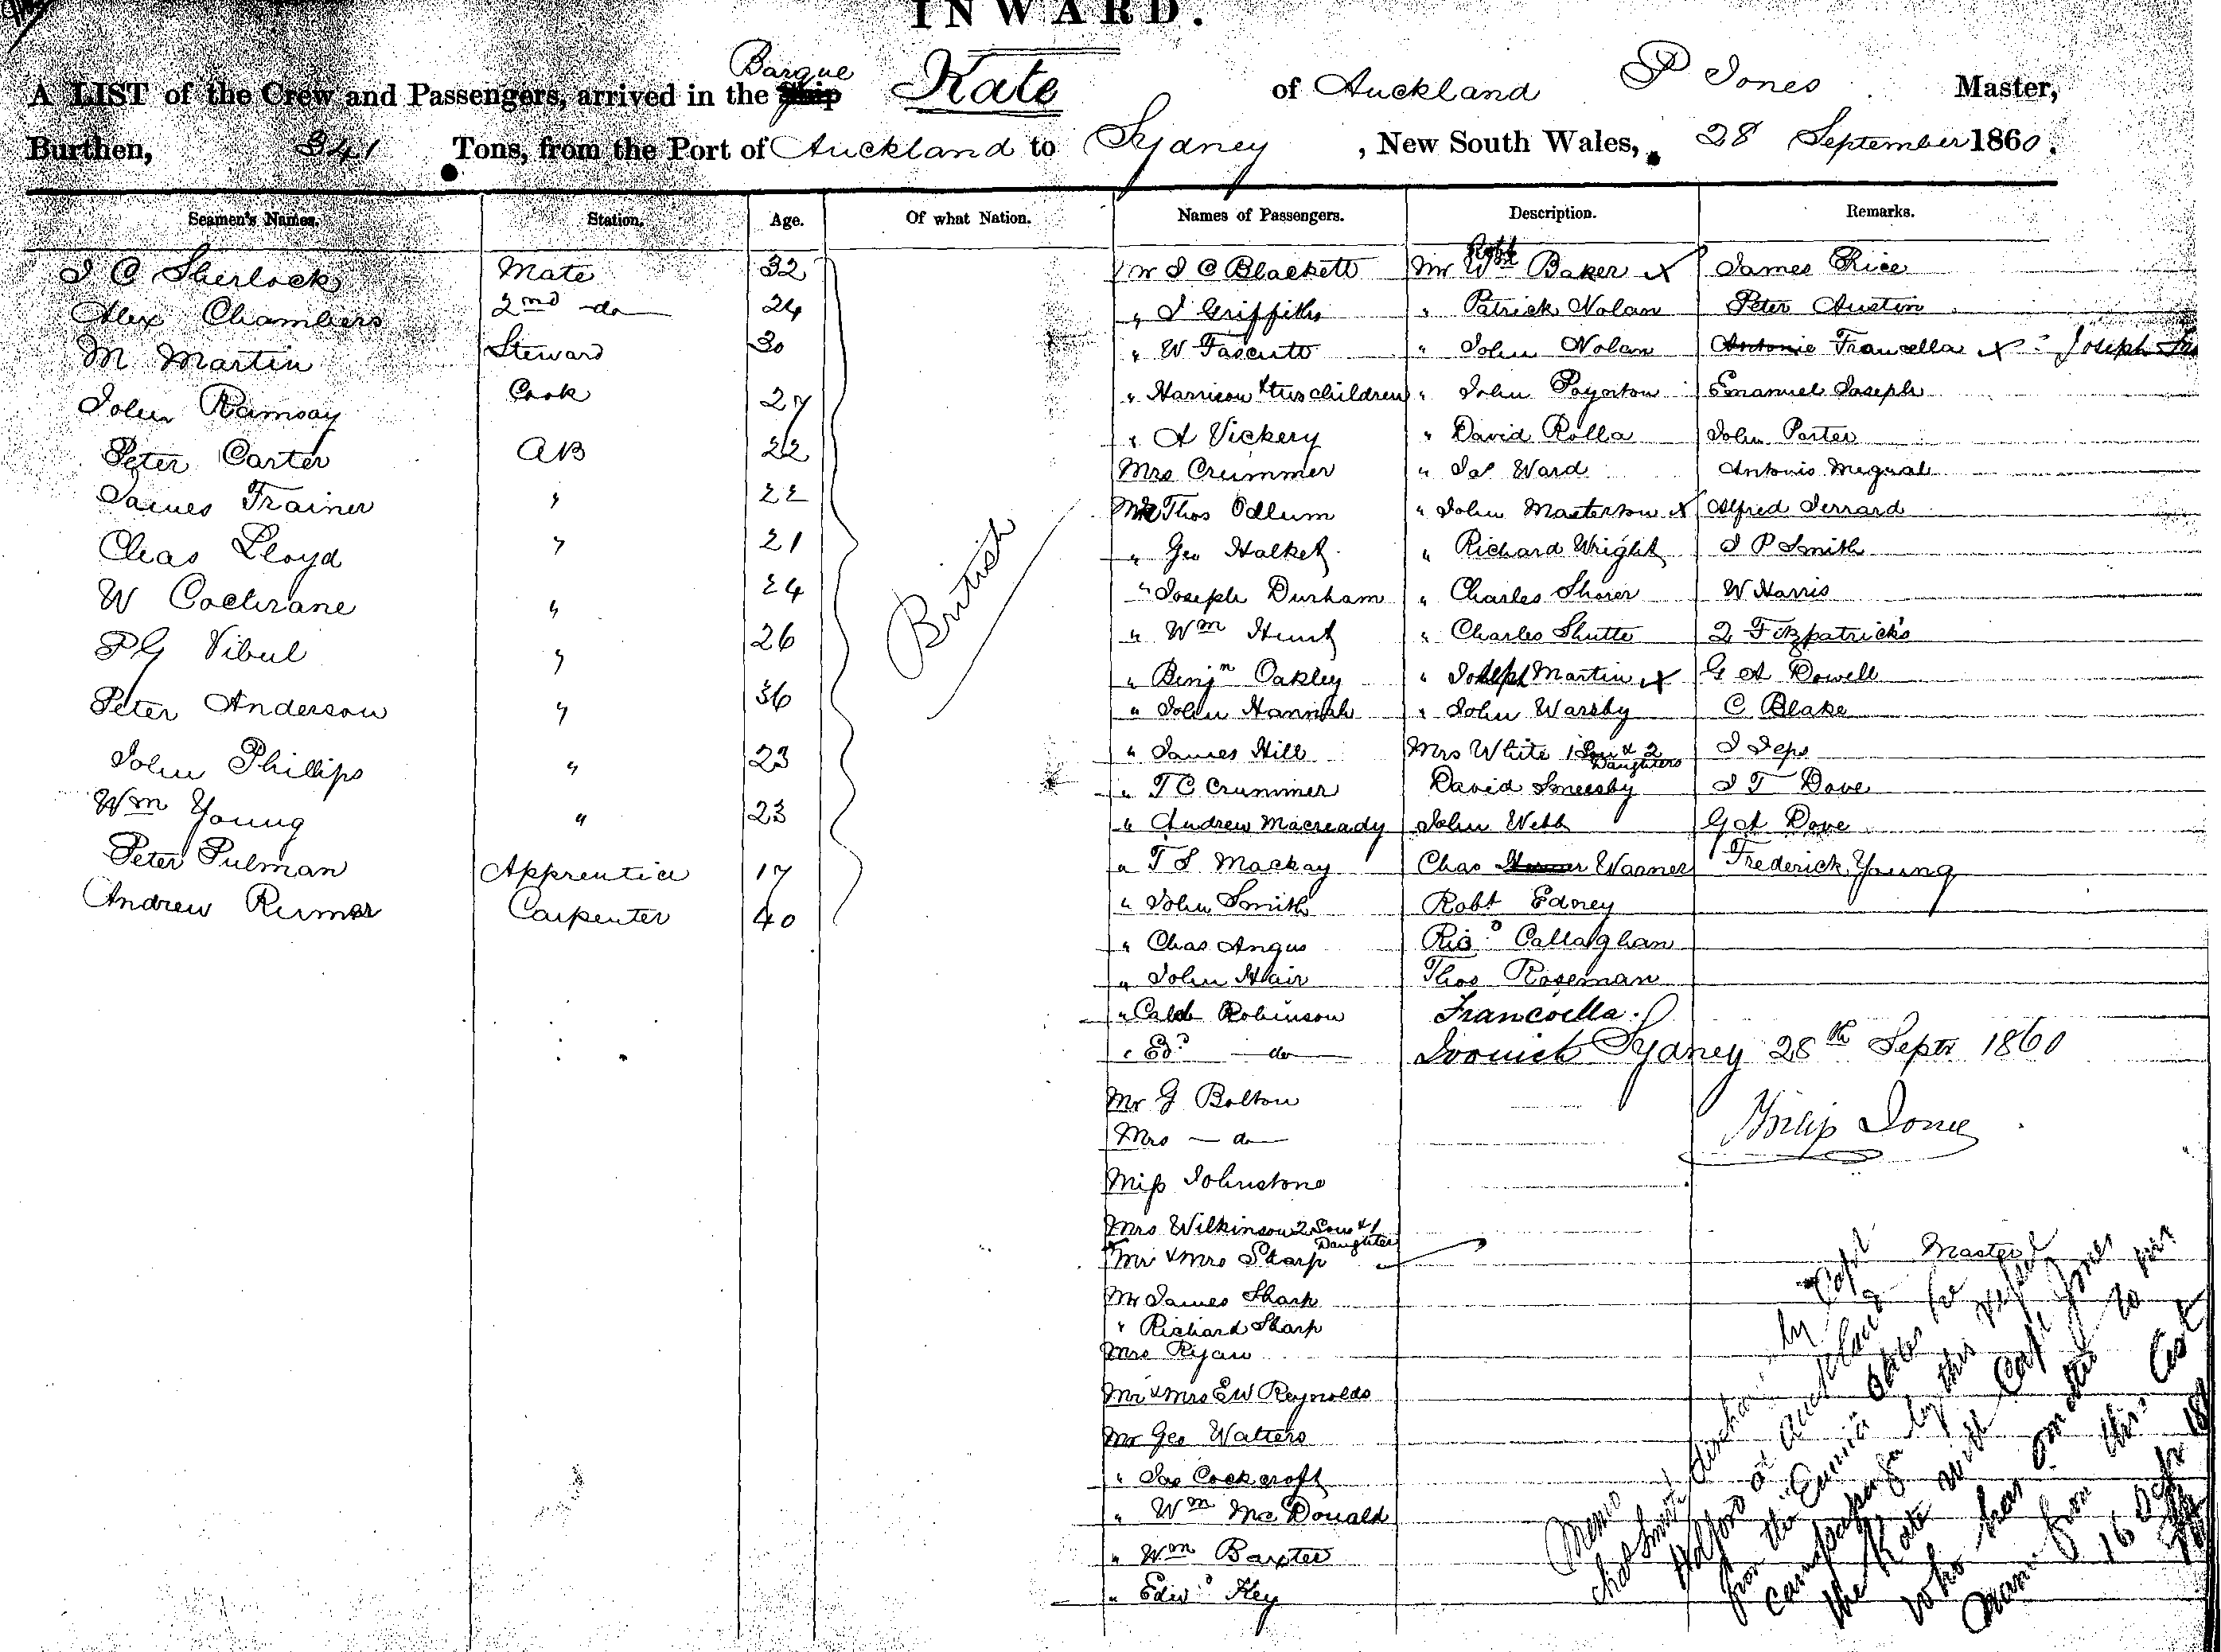 INWARD.
A LIST of the Crew and Passengers, arrived in the Ship Barque Kate of Auckland P Jones Master,
Burthen, 341 Tons, from the Port of Auckland to Sydney, New South Wales, 28 September 1860.
Seamen's Names. Station. Age. Of what Nation. Names of Passengers. Description. Remarks.
J C Sherlock Mate 32
Alex Chambers 2nd do 24
M Martin Steward 30
John Ramsay Cook 27
Peter Carter AB 22
James Trainer " 22
Chas Lloyd " 21
W Cochrane " 24
P G Vibul " 26
Peter Anderson " 36
John Phillips " 23
Wm Young " 23
Peter Pulman Apprentice 17
Andrew Rumer Carpenter 40
British
Mr J C Blackett
" J Griffiths
" W
" Harrison & two children
" A Vickery
Mrs Crummer
Mr Thos Odlum
" Geo Halket
" Joseph Durham
" Wm Hunt
" Benjn Oakley
" John Hannah
" James Hill
" T C Crummer
" Andrew Macready
" T S Mackay
" John Smith
" Chas Angus
" John Hair
" Caleb Robinson
" Ed: do
Mr G Bolton
Mrs do
Miss Johnstone
Mrs Wilkinson 2 Sons & 1 Daughter
Mr & Mrs Sharp
Mr James Sharp
" Richard Sharp
Mrs Ryan
Mr & Mrs E W Reynolds
Mr Geo Watters
" Jas Cockcroft
" Wm McDonald
" Wm Baxter
" Edwd Key
Mr Wm Robt Baker X
" Patrick Nolan
" John Nolan
" John Poynton
" David Rolla
" Jas Ward
" John Masterton X
" Richard Wright
" Charles Shorer
" Charles Shutte
" Joseph Martin X
" John Warsby
Mrs White 1 Son & 2 Daughters
David Smeesby
John Webb
Chas Warner
Robt Edney
Ricd Callaghan
Thos Roseman
Francoella
James Rice
Peter Austin
Antonie Francella X Joseph
Emanuel Joseph
John Porter
Antonio
Alfred Jerrard
J P Smith
W Harris
2 Fitzpatrick's
G A Dowell
C Blake
J Jeps
J T Dove
G A Dove
Frederick Young
Sydney 28th Septr 1860
Philip Jones
Master
Memo
Chas Smith by Capt
at Auckland
from the Eunice States he
came passenger by this vessel
the Kate with Capt Jones
who has omitted to
name from this List
16 Octr